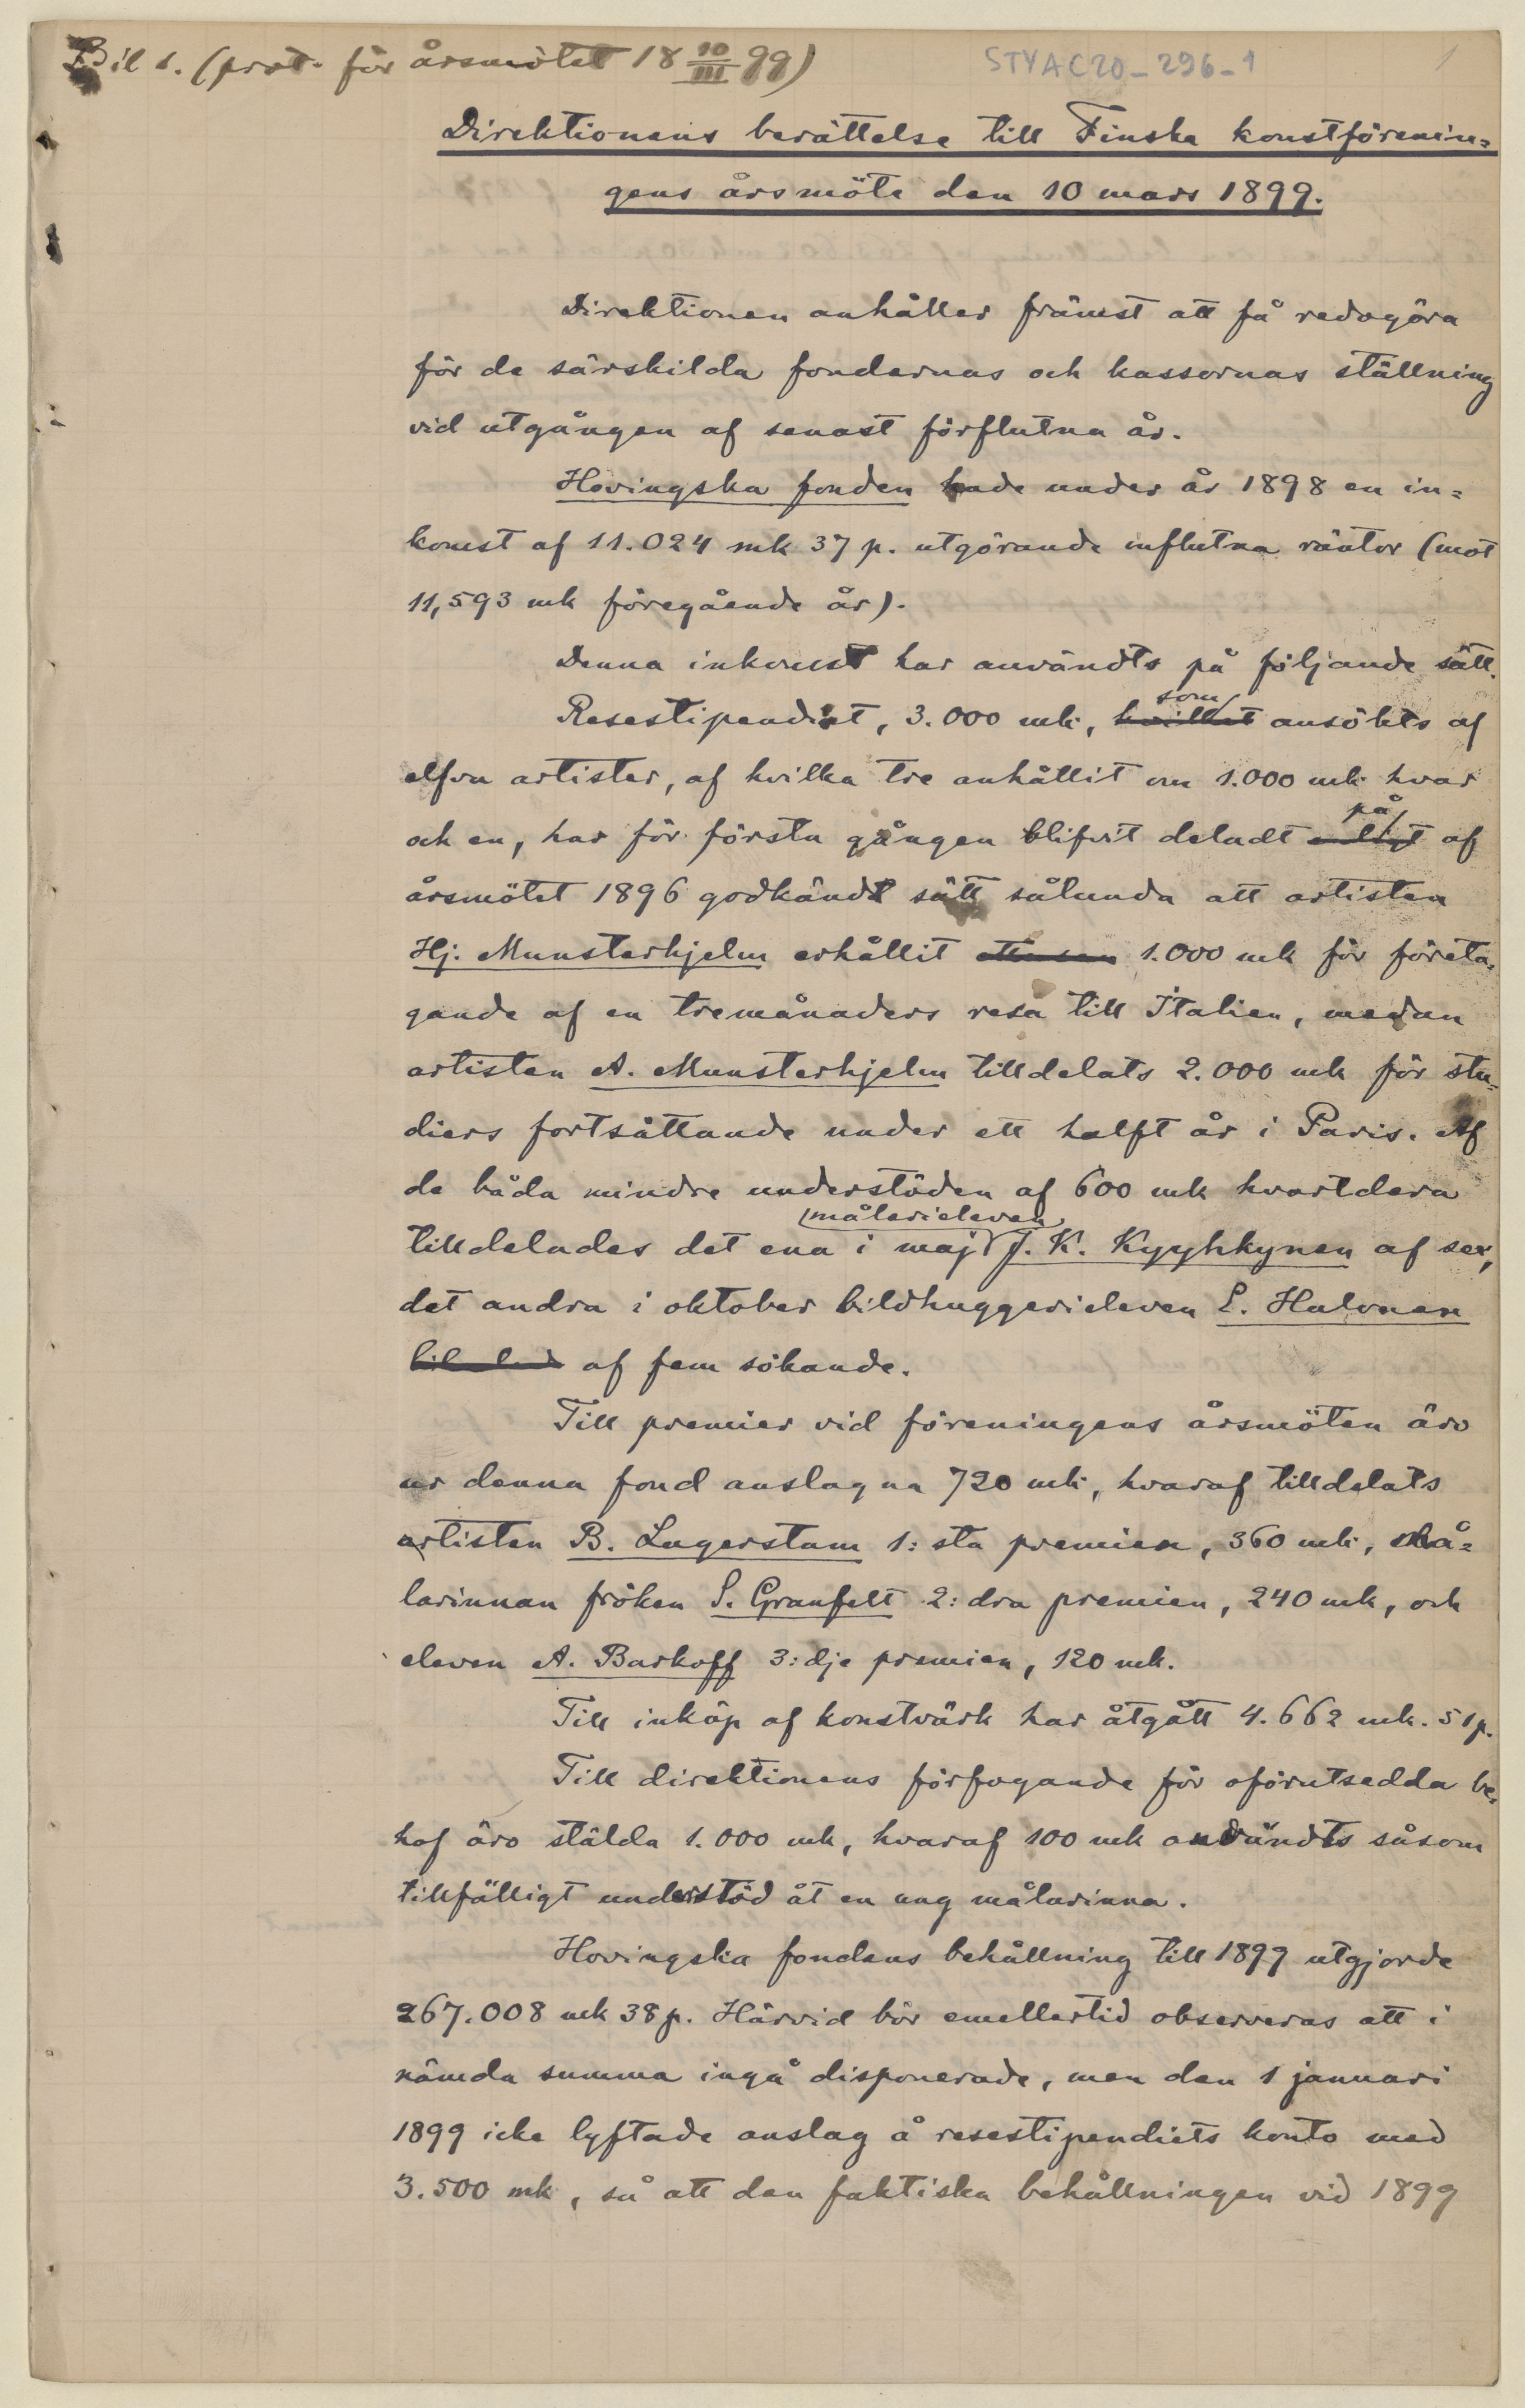 Bil 1. (prot. för årsmötet 18 10/III 99)
STYA C20-296-1
1
Direktionens berättelse till Finska konstförenin=
gens årsmöte den 10 mars 1899.
Direktionen anhåller främst att få redogöra
för de särskilda fondernas och kassornas ställning
vid utgången af senast förflutna år.
Hovingska fonden hade under år 1898 en in=
komst af 11.024 mk 37 p. utgörande influtna räntor (mot
11,593 mk föregående år).
Denna inkomst har användts på följande sätt.
Resestipendiet, 3.000 mk, hvilket som ansökts af
elfva artister, af hvilka tre anhållit om 1.000 mk hvar
och en, har för första gången blifvit deladt enligt på af
årsmötet 1896 godkändt sätt sålunda att artisten
Hj. Munsterhjelm erhållit 1.000 mk för företa=
gande af en tremånaders resa till Italien, medan
artisten A. Munsterhjelm tilldelats 2.000 mk för stu=
diers fortsättande under ett halft år i Paris. Af
de båda mindre understöden af 600 mk hvartdera
tilldelades det ena i maj målarieleven J. K. Kyyhkynen af sex,
det andra i oktober bildhuggerieleven E. Halonen
af fem sökande.
Till premier vid föreningens årsmöten äro
ur denna fond anslagna 720 mk, hvaraf tilldelats
artisten B. Lagerstam 1:sta premien, 360 mk, må=
larinnan fröken S. Granfelt 2:dra premien, 240 mk, och
eleven A. Barkoff 3:dje premien, 120 mk.
Till inköp af konstvärk har åtgått 4.662 mk. 51 p.
Till direktionens förfogande för oförutsedda be=
hof äro stälda 1.000 mk, hvaraf 100 mk användts såsom
tillfälligt understöd åt en ung målarinna.
Hovingska fondens behållning till 1899 utgjorde
267.008 mk 38 p. Härvid bör emellertid observeras att i
nämda summa ingå disponerade, men den 1 januari
1899 icke lyftade anslag å resestipendiets konto med
3.500 mk, så att den faktiska behållningen vid 1899